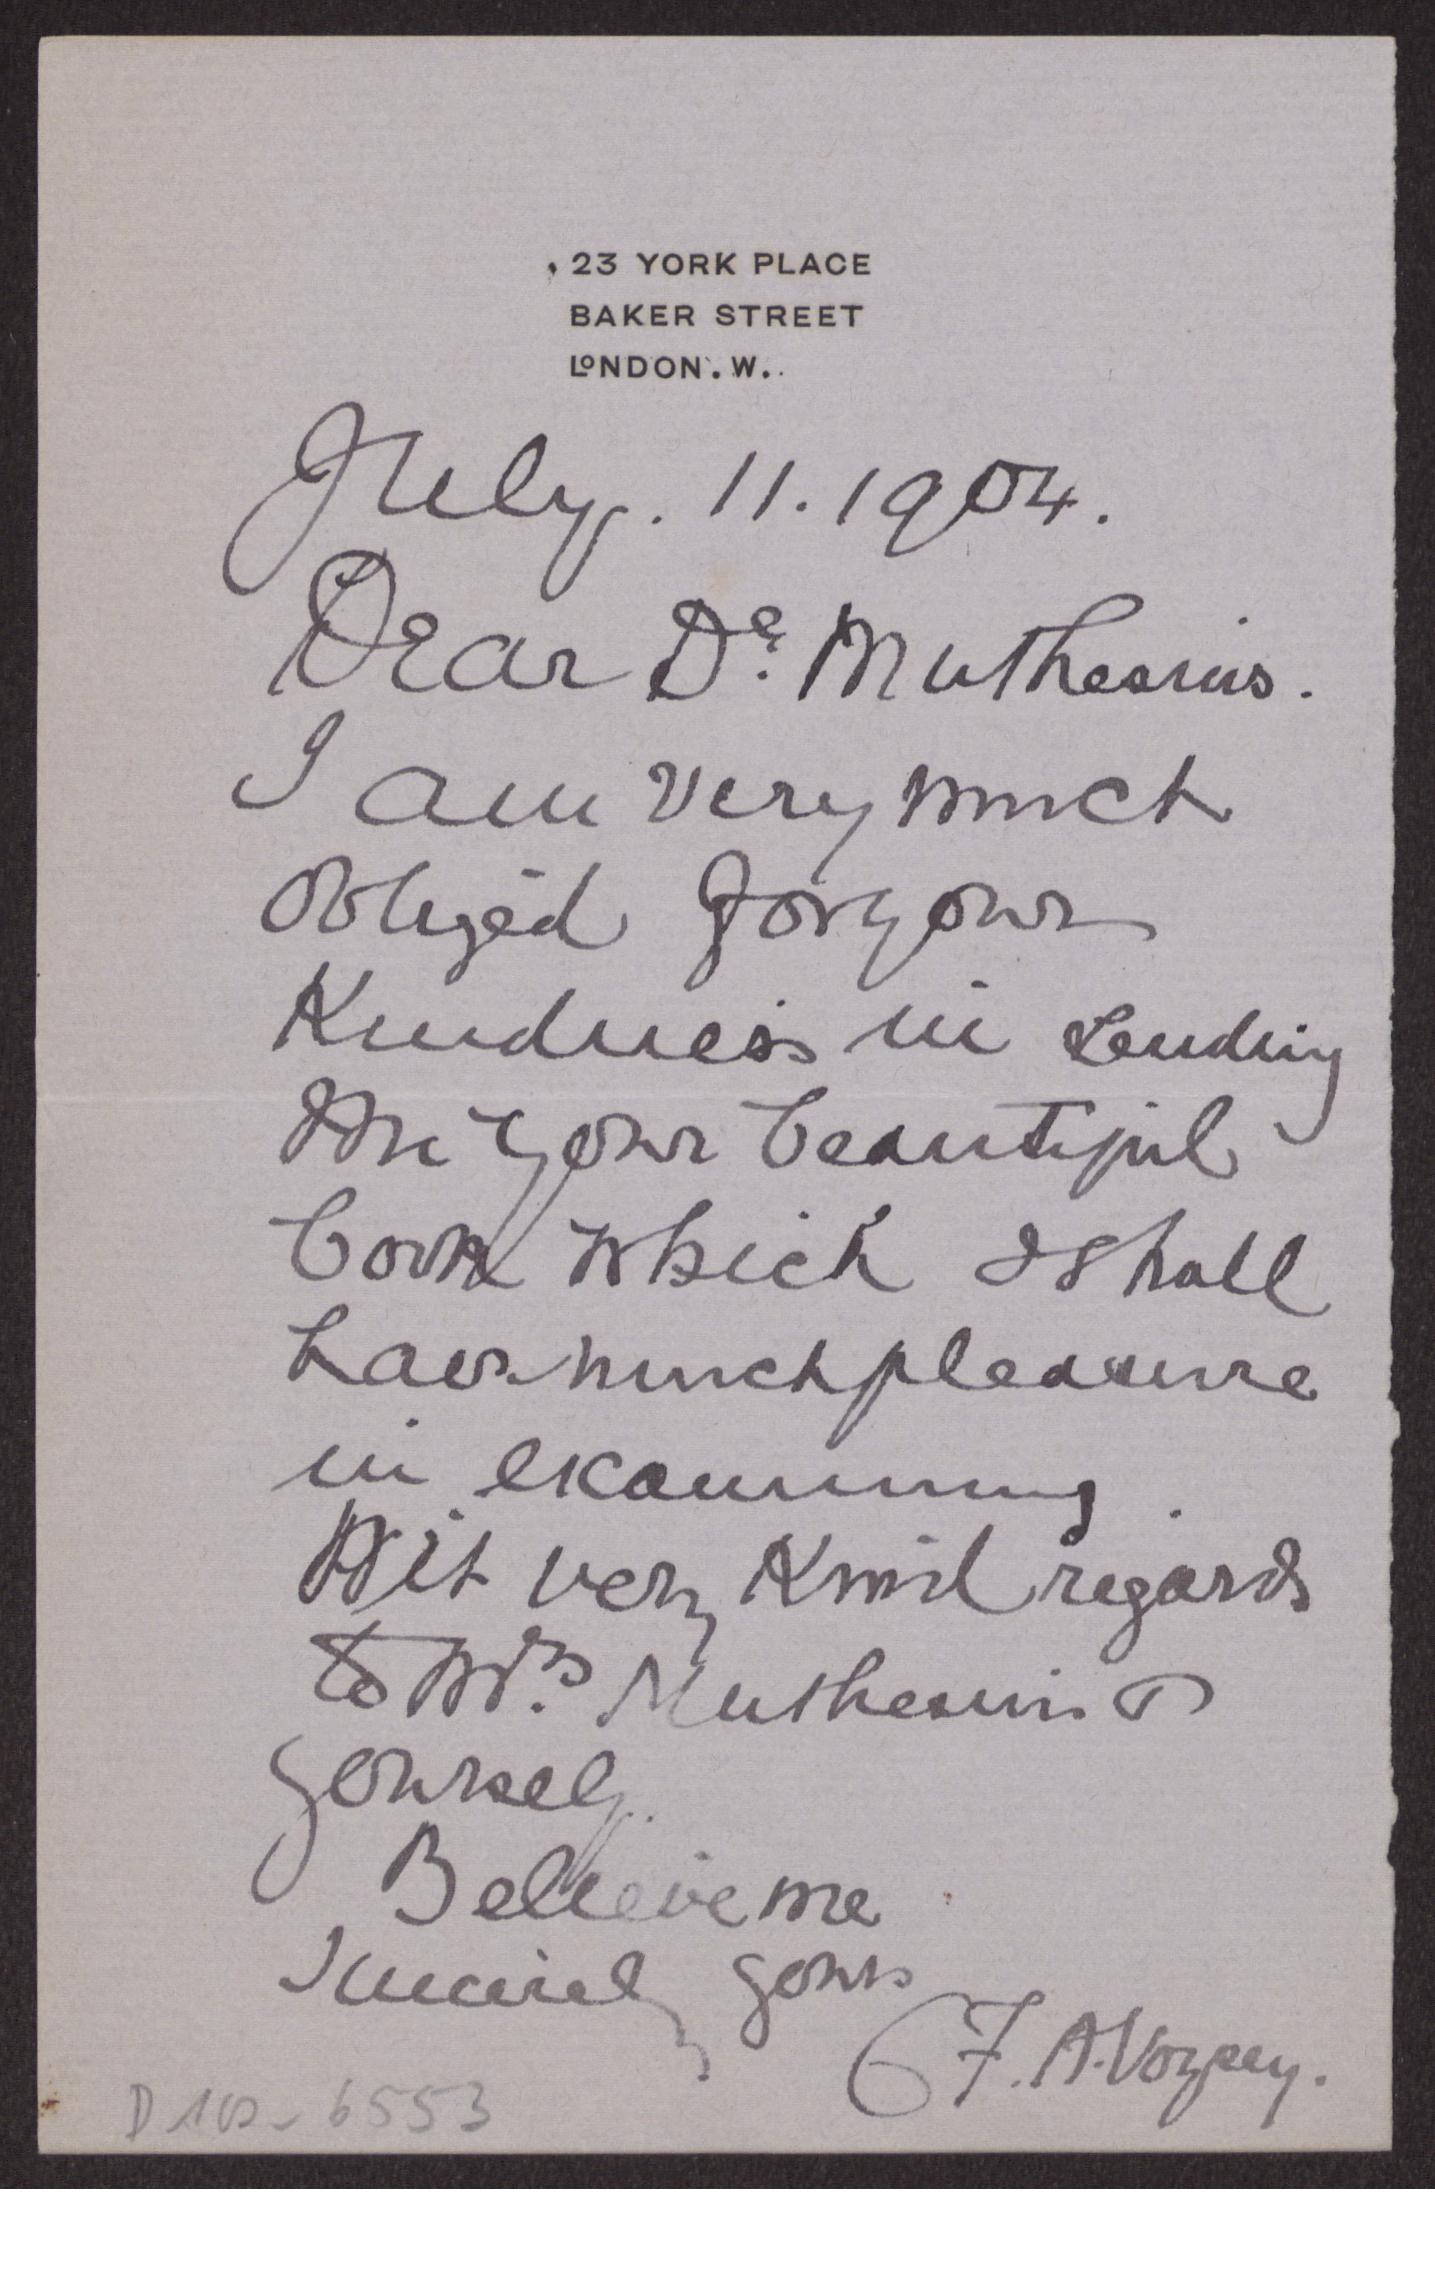 23 YORK PLACE
BAKER STREET
LONDON. W.
July. 11. 1904.
Dear Dr. Muthesius.
I am very much
obliged for your
Kindness in Lending
me your beautiful
book which I shall
have much pleasure
in examining.
With very Kind regards
to Mrs. Muthesius &
yourself.
Believe me
sincerely yours
C. F. A. Voysey.
D 102-6553